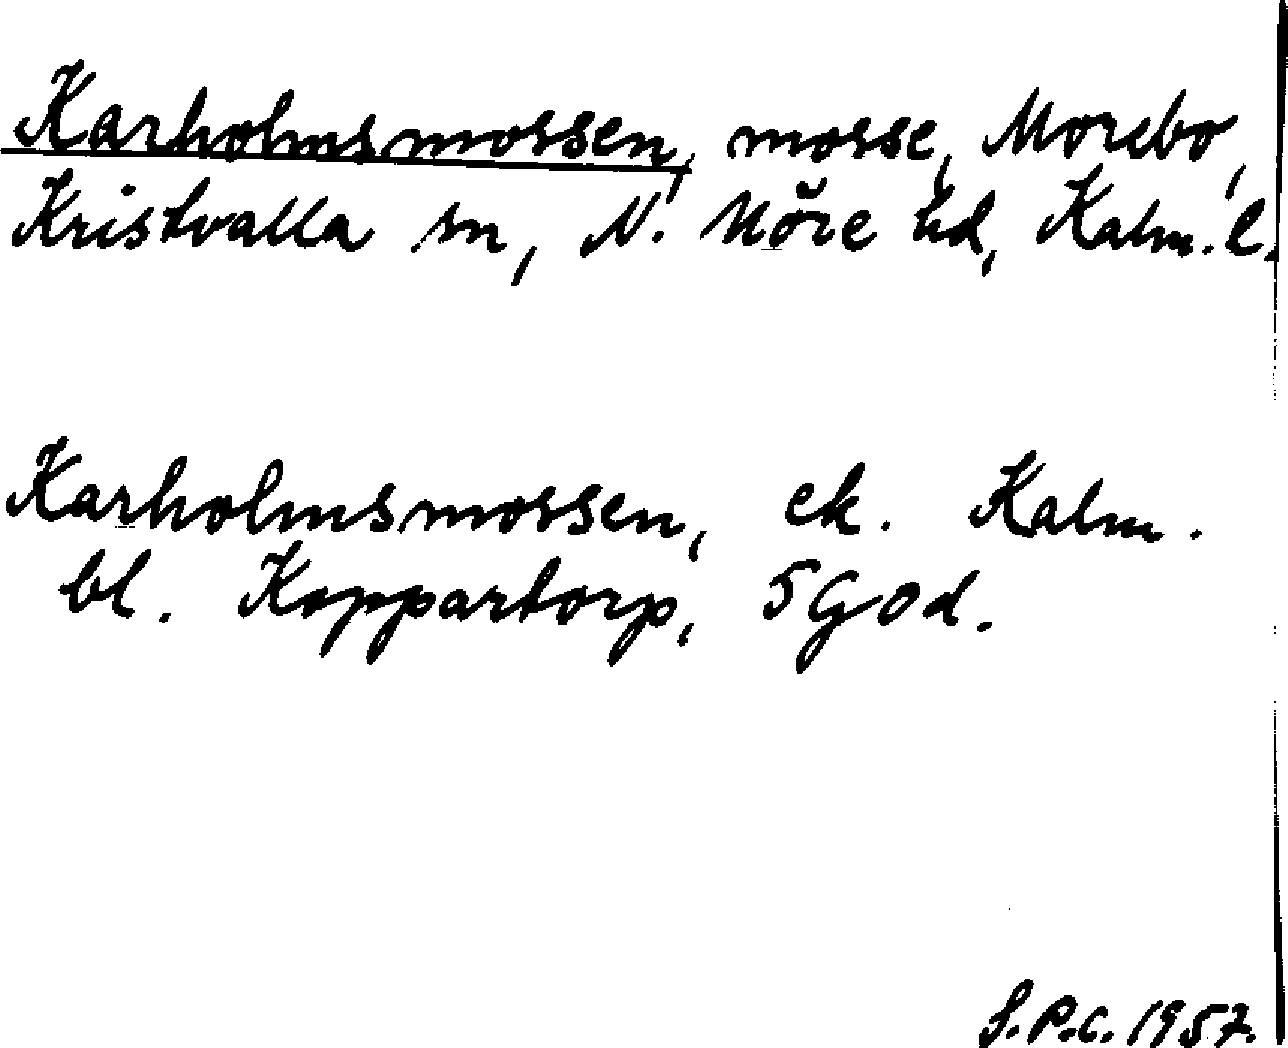 Karholmsmossen, mosse, Morebo,
Kristvalla sn, N. Möre hd, Kalm. l.
Karholmsmossen, ek. Kalm.
bl. Koppartorp, 5G0d.
S.P.C. 1957.